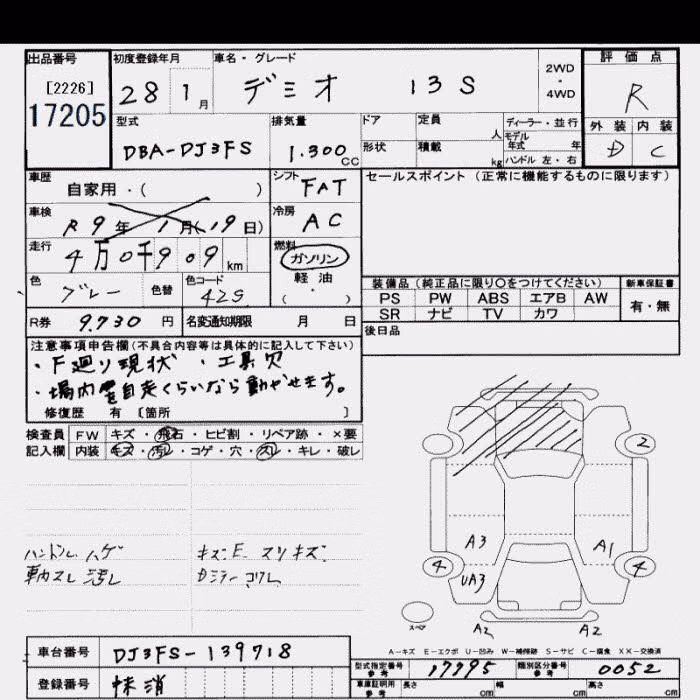 出品番号 初度登録年月 車名・グレード 評価点
[2226] 28 1月 デミオ 13S 2WD・4WD R
17205
型式 排気量 ドア 定員 人 ディーラー・並行 外装 内装
DBA-DJ3FS 1.300CC 形状 積載 kg モデル年式 年 ハンドル 左・右 D C
車歴 自家用・( ) シフト FAT セールスポイント (正常に機能するものに限ります)
車検 R9年1月(19日) 冷房 AC
走行 4万0千909km 燃料 ガソリン
軽油
( )
色 グレー 色替 色コード 42S
装備品 (純正品に限り○をつけてください) 新車保証書
PS PW ABS エアB AW 有・無
SR ナビ TV カワ
R券 9.730円 名変通知期限 月 日
後日品
注意事項申告欄(不具合内容等は具体的に記入して下さい)
・下廻り現状 ・工具欠
・場内を自走くらいなら動かせます。
修復歴 有 〔箇所 〕
検査員 FW キズ・飛石・ヒビ割・リペア跡・×要
記入欄 内装 キズ・汚レ・コゲ・穴・ ・キレ・破レ
2
ハンドル ハゲ キズ・E スリキズ
車内スレ汚レ Dミラー コワレ
A3 A1
4 UA3 4
スペア
A2 A2
A－キズ E－エクボ U－凹み W－補修跡 S－サビ C－腐食 XX－交換済
車台番号 DJ3FS-139718
型式指定番号 参考 17795 類別区分番号 参考 0052
登録番号 抹消
車庫証明用 参考 長さ cm 幅 cm 高さ cm